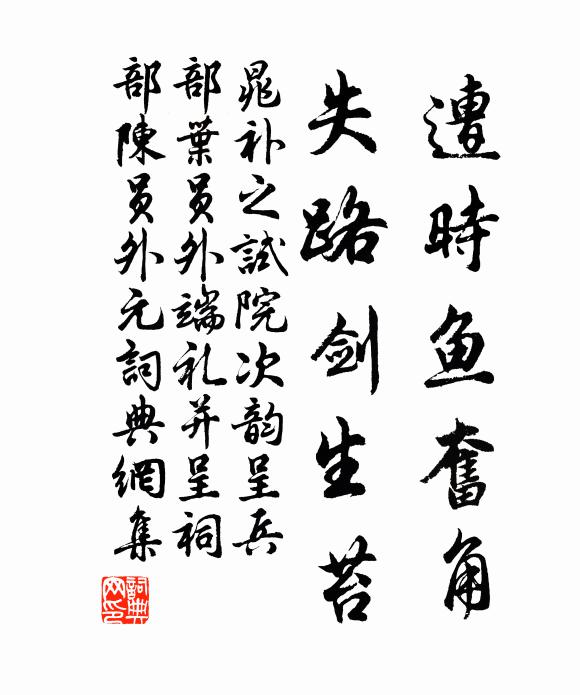 遭時鱼奮角
失路劍生苔
晁补之試院次韵呈兵
部葉員外端礼并呈祠
部陳員外元詞典網集
詞典网印